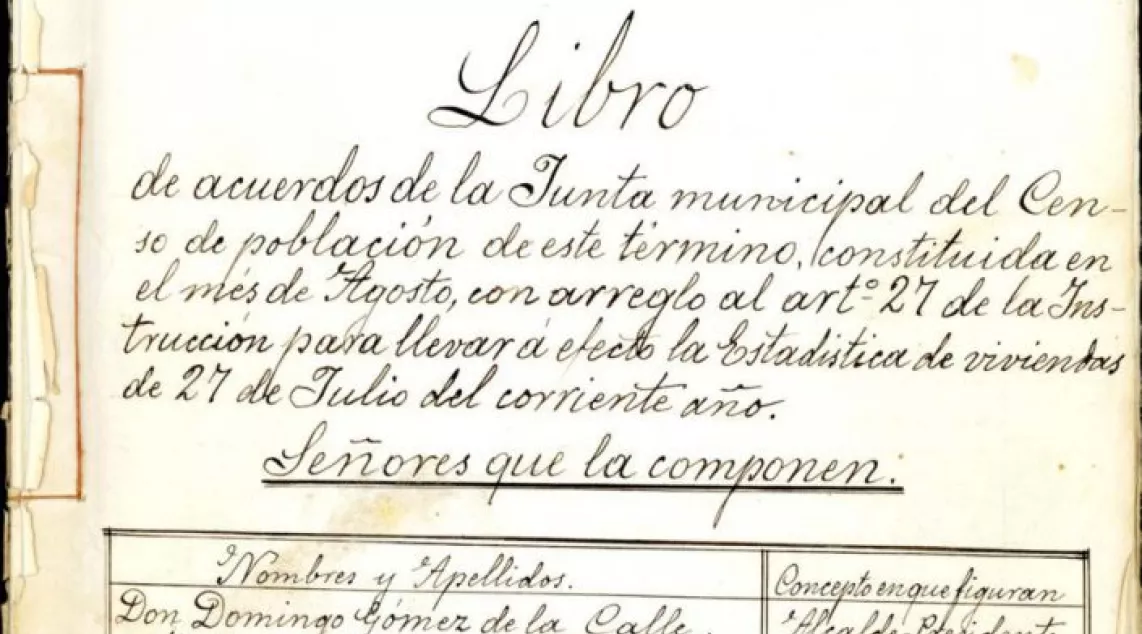 Libro
de acuerdos de la Junta municipal del Cen-
so de población de este término, constituida en
el més de Agosto, con arreglo al artº 27 de la Ins-
trucción para llevar á efecto la Estadistica de viviendas
de 27 de Julio del corriente año.
Señores que la componen.
Nombres y Apellidos. Concepto en que figuran
Don Domingo Gómez de la Calle. Alcalde-President